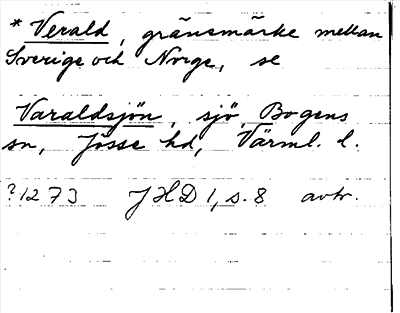 * Verald, gränsmärke mellan
Sverige och Norge, se
Varaldsjön, sjö, Bogens
sn, Jösse hd, Värml. l.
?1273 JHD 1, s. 8 avtr.